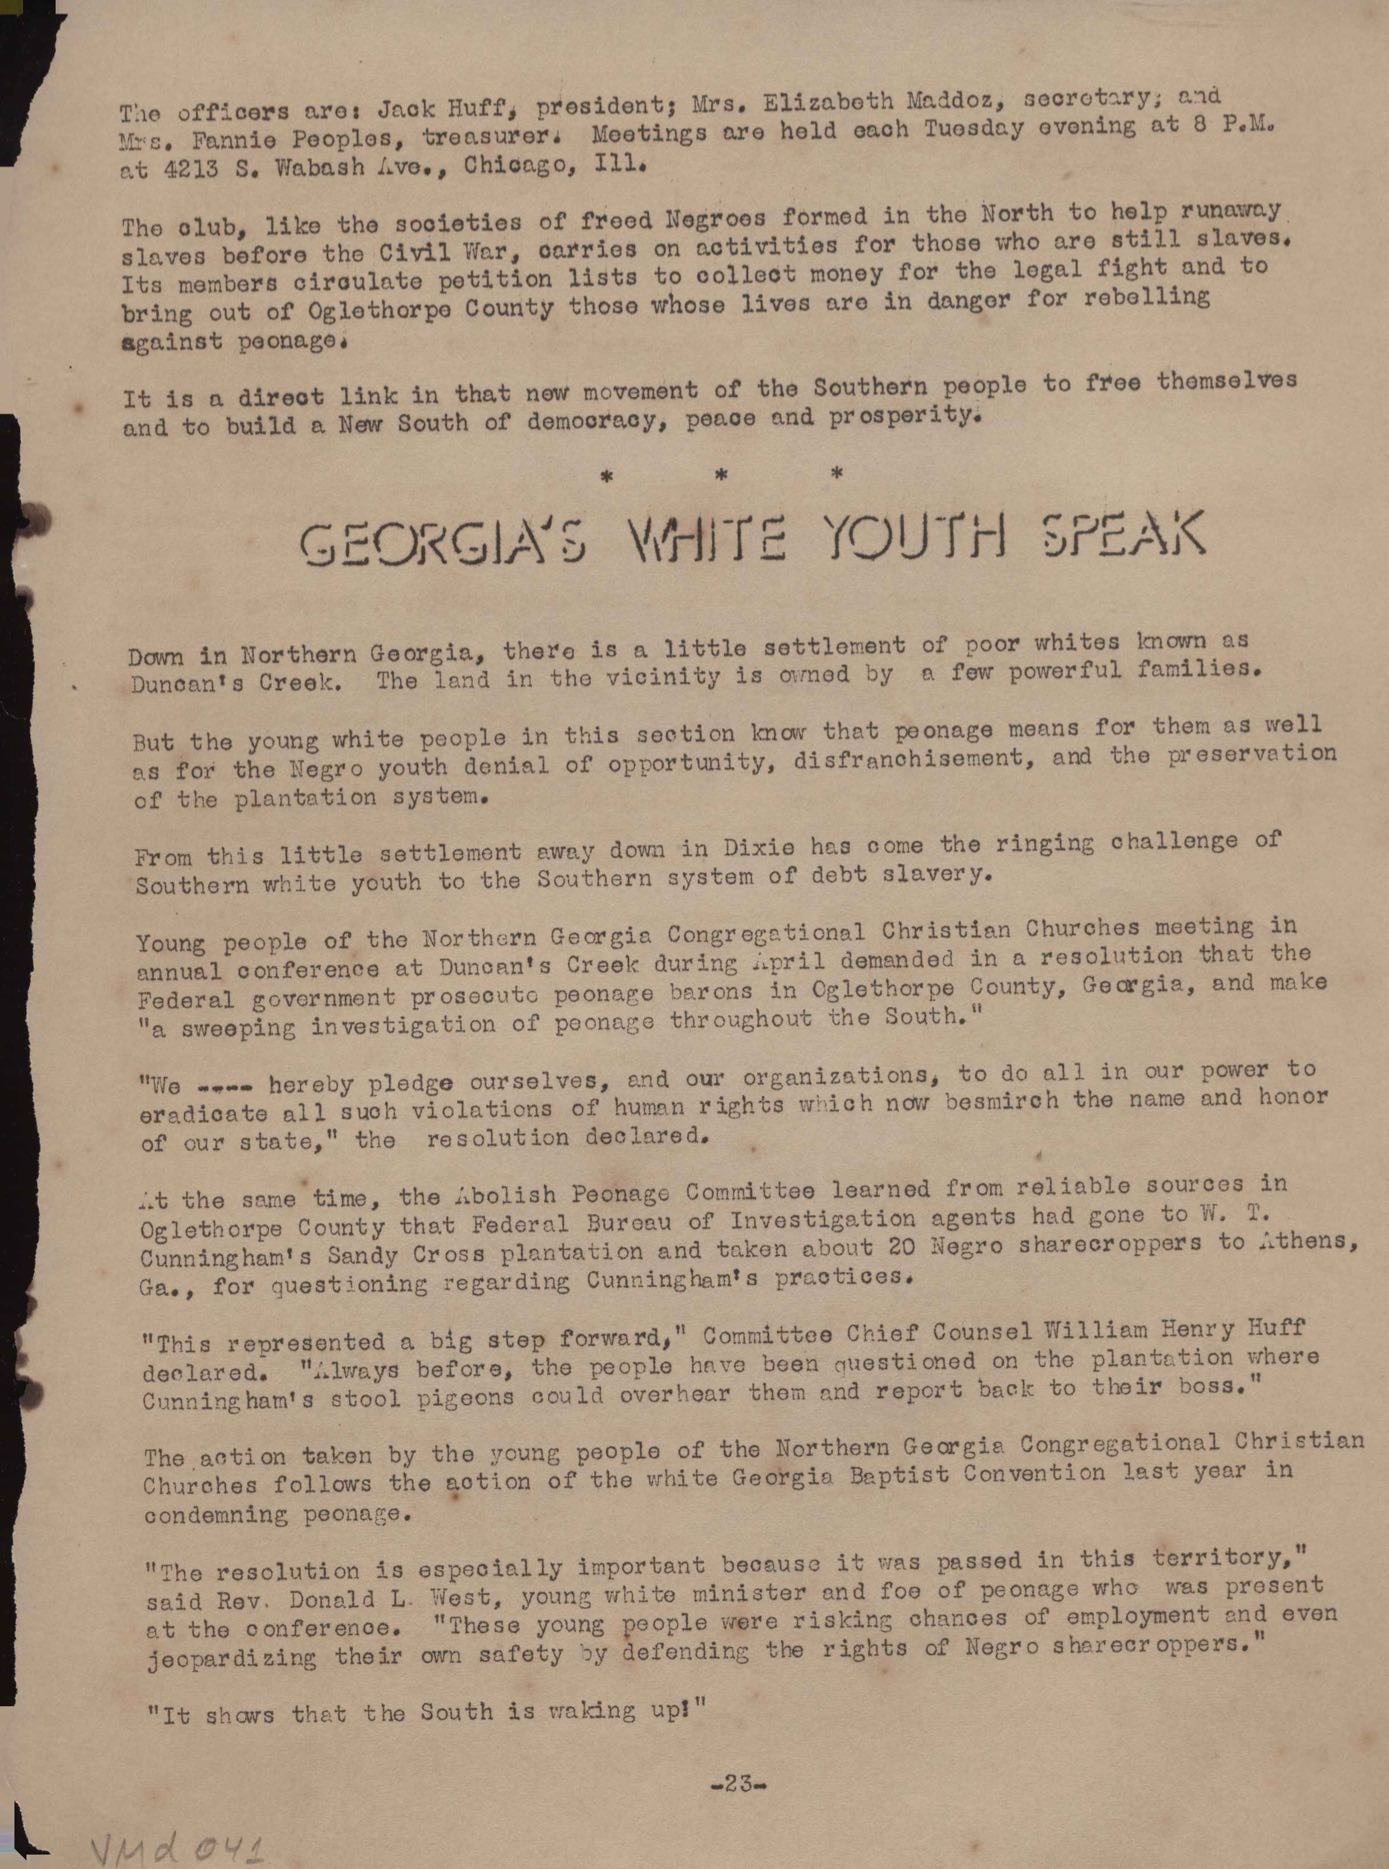 The officers are: Jack Huff, president; Mrs. Elizabeth Maddoz, secretary; and
Mrs. Fannie Peoples, treasurer. Meetings are held each Tuesday evening at 8 P.M.
at 4213 S. Wabash Ave., Chicago, Ill.
The club, like the societies of freed Negroes formed in the North to help runaway
slaves before the Civil War, carries on activities for those who are still slaves.
Its members circulate petition lists to collect money for the legal fight and to
bring out of Oglethorpe County those whose lives are in danger for rebelling
against peonage.
It is a direct link in that new movement of the Southern people to free themselves
and to build a New South of democracy, peace and prosperity.
* * *
GEORGIA'S WHITE YOUTH SPEAK
Down in Northern Georgia, there is a little settlement of poor whites known as
Duncan's Creek. The land in the vicinity is owned by a few powerful families.
But the young white people in this section know that peonage means for them as well
as for the Negro youth denial of opportunity, disfranchisement, and the preservation
of the plantation system.
From this little settlement away down in Dixie has come the ringing challenge of
Southern white youth to the Southern system of debt slavery.
Young people of the Northern Georgia Congregational Christian Churches meeting in
annual conference at Duncan's Creek during April demanded in a resolution that the
Federal government prosecute peonage barons in Oglethorpe County, Georgia, and make
"a sweeping investigation of peonage throughout the South."
"We ---- hereby pledge ourselves, and our organizations, to do all in our power to
eradicate all such violations of human rights which now besmirch the name and honor
of our state," the resolution declared.
At the same time, the Abolish Peonage Committee learned from reliable sources in
Oglethorpe County that Federal Bureau of Investigation agents had gone to W. T.
Cunningham's Sandy Cross plantation and taken about 20 Negro sharecroppers to Athens,
Ga., for questioning regarding Cunningham's practices.
"This represented a big step forward," Committee Chief Counsel William Henry Huff
declared. "Always before, the people have been questioned on the plantation where
Cunningham's stool pigeons could overhear them and report back to their boss."
The action taken by the young people of the Northern Georgia Congregational Christian
Churches follows the action of the white Georgia Baptist Convention last year in
condemning peonage.
"The resolution is especially important because it was passed in this territory,"
said Rev. Donald L. West, young white minister and foe of peonage who was present
at the conference. "These young people were risking chances of employment and even
jeopardizing their own safety by defending the rights of Negro sharecroppers."
"It shows that the South is waking up!"
-23-
VMd 041